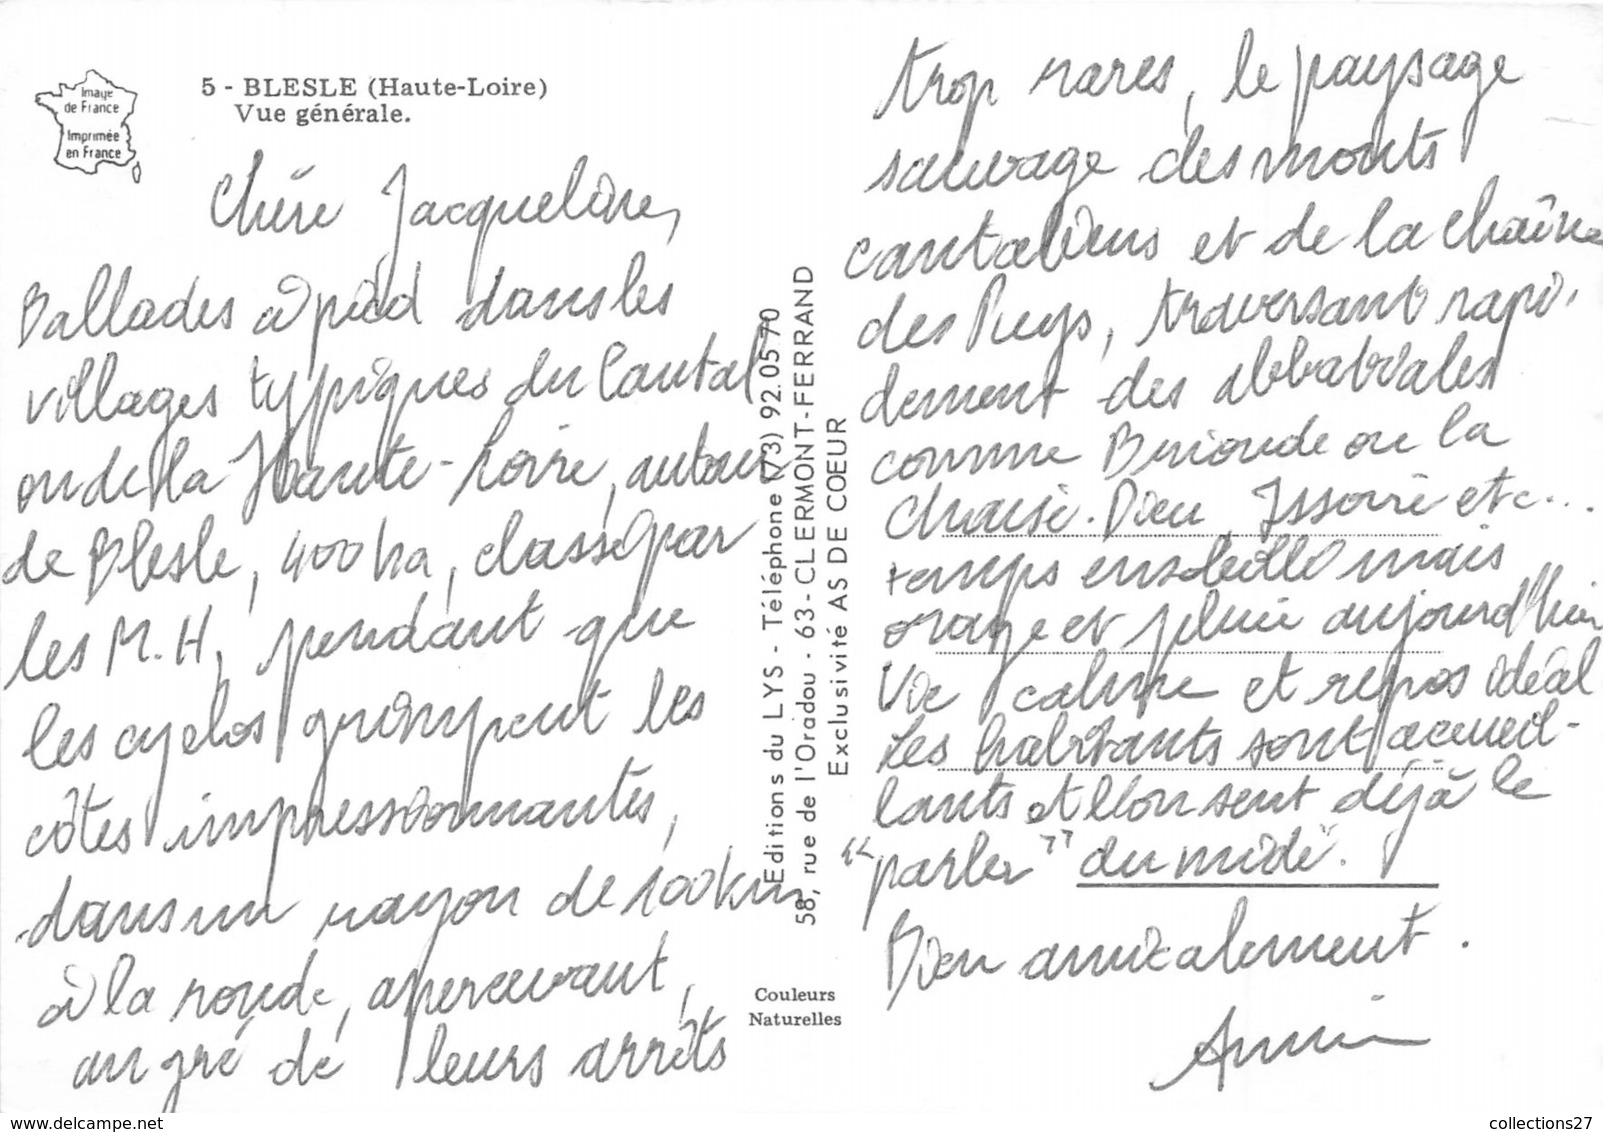 Image
de France
Imprimée
en France
5 - BLESLE (Haute-Loire)
Vue générale.
Chère Jacqueline,
Ballades à pied dans les
villages typiques du Cantal
ou de la Haute-Loire, autour
de Blesle, 400 ha, classé par
les M.H, pendant que
les cyclos grimpent les
côtes impressionnantes,
dans un rayon de 100 km
à la ronde, apercevant,
au gré de leurs arrêts
Editions du LYS - Téléphone (73) 92.05.70
58, rue de l'Oradou - 63 - CLERMONT-FERRAND
Exclusivité AS DE COEUR
Couleurs
Naturelles
trop rares, le paysage
sauvage des monts
cantaliens et de la chaîne
des Puys, traversant rapi-
dement des abbatiales
comme Brioude ou la
Chaise-Dieu, Issoire etc...
temps ensoleillé mais
orage et pluie aujourd'hui
Vie calme et repos idéal
Les habitants sont accueil-
lants et l'on sent déjà le
"parler" du midi.
Bien amicalement.
Annie
collections27